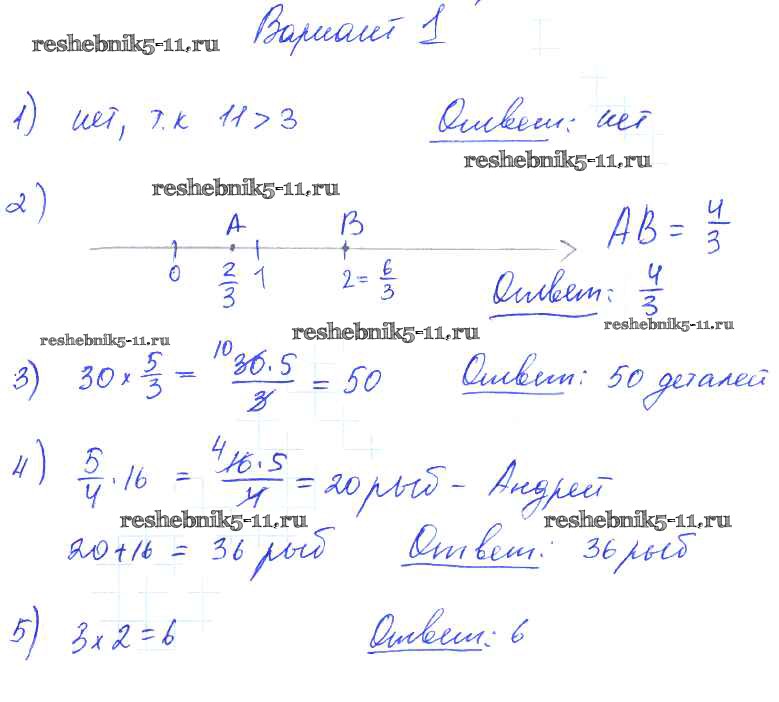 Вариант 1
reshebnik5-11.ru
1) нет, т.к 11 > 3 Ответ: нет
reshebnik5-11.ru
reshebnik5-11.ru
2) A B AB = 4/3
0 2/3 1 2 = 6/3 Ответ: 4/3
reshebnik5-11.ru reshebnik5-11.ru reshebnik5-11.ru
3) 30 × 5/3 = 10 30·5/3 = 50 Ответ: 50 деталей
4) 5/4 · 16 = 4 16·5/4 = 20 рыб – Андрей
reshebnik5-11.ru reshebnik5-11.ru
20 + 16 = 36 рыб Ответ: 36 рыб
5) 3 × 2 = 6 Ответ: 6